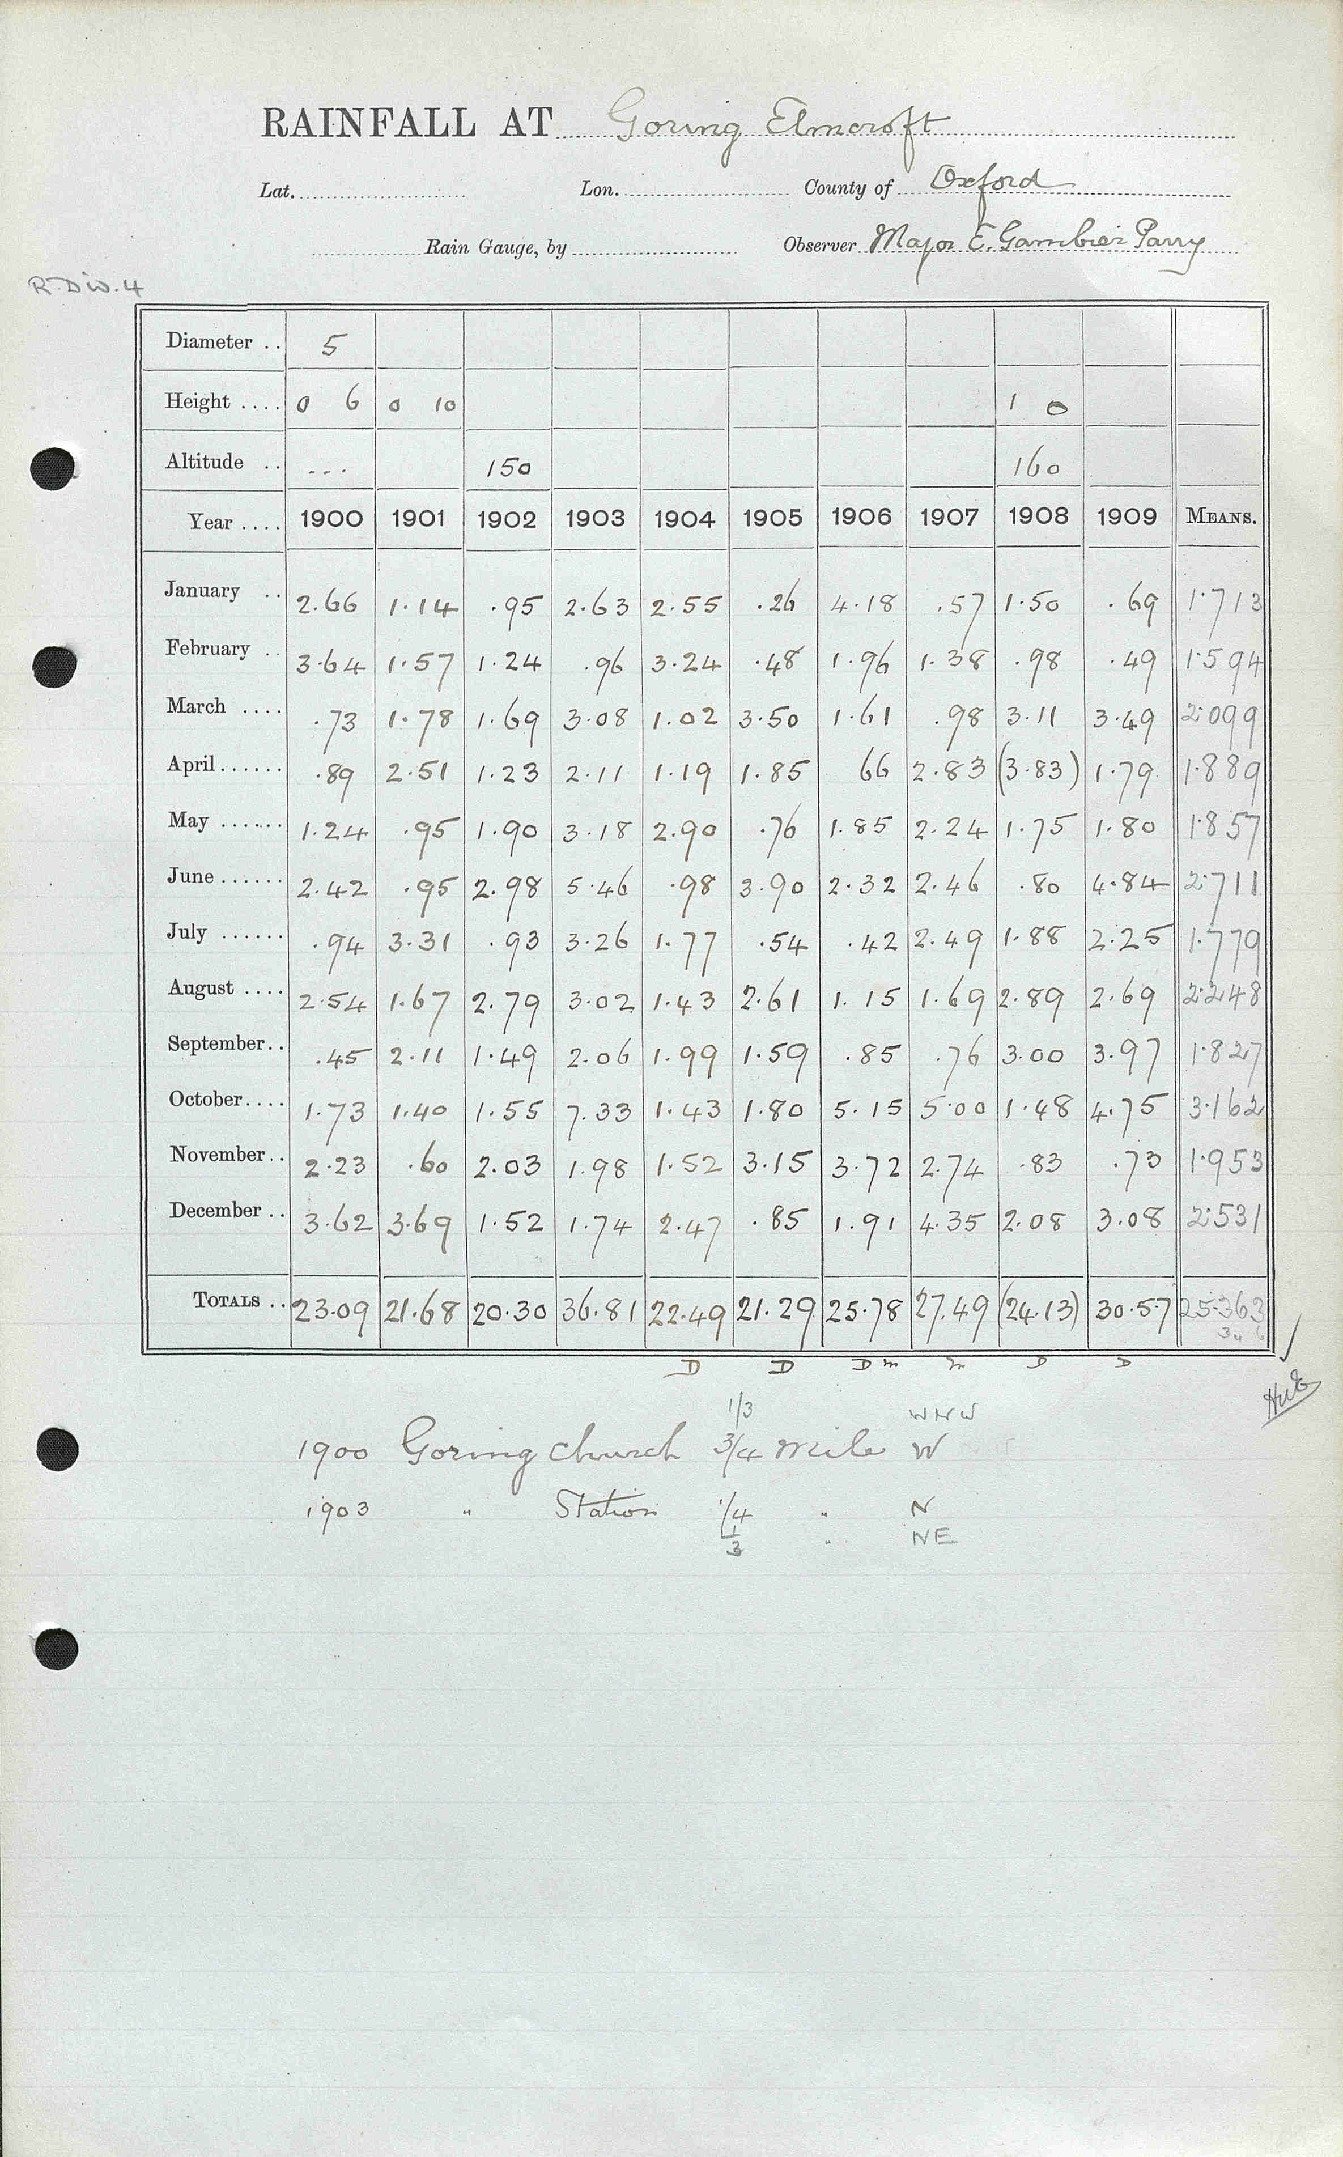 RAINFALL AT Goring Elmcroft
Lat. Lon. County of Oxford
Rain Gauge, by Observer Major E. Gambier Parry
R. Div. 4
Diameter .. 5
Height .... 0 6 0 10 1 0
Altitude .. --- 150 160
Year .... 1900 1901 1902 1903 1904 1905 1906 1907 1908 1909 MEANS.
January .. 2.66 1.14 .95 2.63 2.55 .26 4.18 .57 1.50 .69 1.713
February .. 3.64 1.57 1.24 .96 3.24 .48 1.96 1.38 .98 .49 1.594
March .... .73 1.78 1.69 3.08 1.02 3.50 1.61 .98 3.11 3.49 2.099
April ...... .89 2.51 1.23 2.11 1.19 1.85 66 2.83 (3.83) 1.79 1.889
May ...... 1.24 .95 1.90 3.18 2.90 .76 1.85 2.24 1.75 1.80 1.857
June ...... 2.42 .95 2.98 5.46 .98 3.90 2.32 2.46 .80 4.84 2.711
July ...... .94 3.31 .93 3.26 1.77 .54 .42 2.49 1.88 2.25 1.779
August .... 2.54 1.67 2.79 3.02 1.43 2.61 1.15 1.69 2.89 2.69 2.248
September .. .45 2.11 1.49 2.06 1.99 1.59 .85 .76 3.00 3.97 1.827
October .... 1.73 1.40 1.55 7.33 1.43 1.80 5.15 5.00 1.48 4.75 3.162
November .. 2.23 .60 2.03 1.98 1.52 3.15 3.72 2.74 .83 .73 1.953
December .. 3.62 3.69 1.52 1.74 2.47 .85 1.91 4.35 2.08 3.08 2.531
TOTALS .. 23.09 21.68 20.30 36.81 22.49 21.29 25.78 27.49 (24.13) 30.57 25.363
D D D m m D D
1/3 WNW
1900 Goring Church 3/4 mile W
1903 " Station 1/4 " N
1/3 " NE